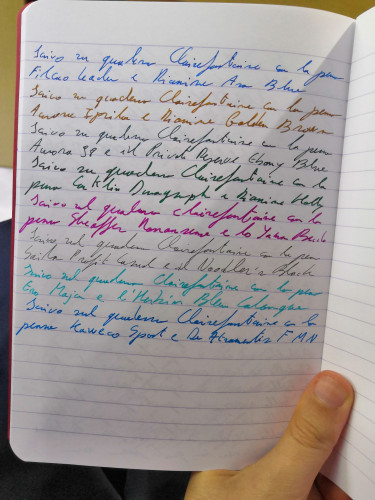 Scrivo su quaderno Clairefontaine con la penna
Filcao Leader e Diamine Asa Blue
Scrivo su quaderno Clairefontaine con la penna
Aurora Ipsilon e Diamine Golden Brown
Scrivo su quaderno Clairefontaine con la penna
Aurora 88 e il Private Reserve Ebony Blue
Scrivo su quaderno Clairefontaine con la
penna Conklin Duragraph e Diamine
Scrivo sul quaderno Clairefontaine con la
penna Sheaffer e lo Yama Budo
Scrivo sul quaderno Clairefontaine con la penna
Sailor Profit Casual e il Noodler's Black
Scrivo sul quaderno Clairefontaine con la penna
Majan e l'Herbin Bleu Calanque
Scrivo sul quaderno Clairefontaine con la
penna Kaweco Sport e De Atramentis FMN